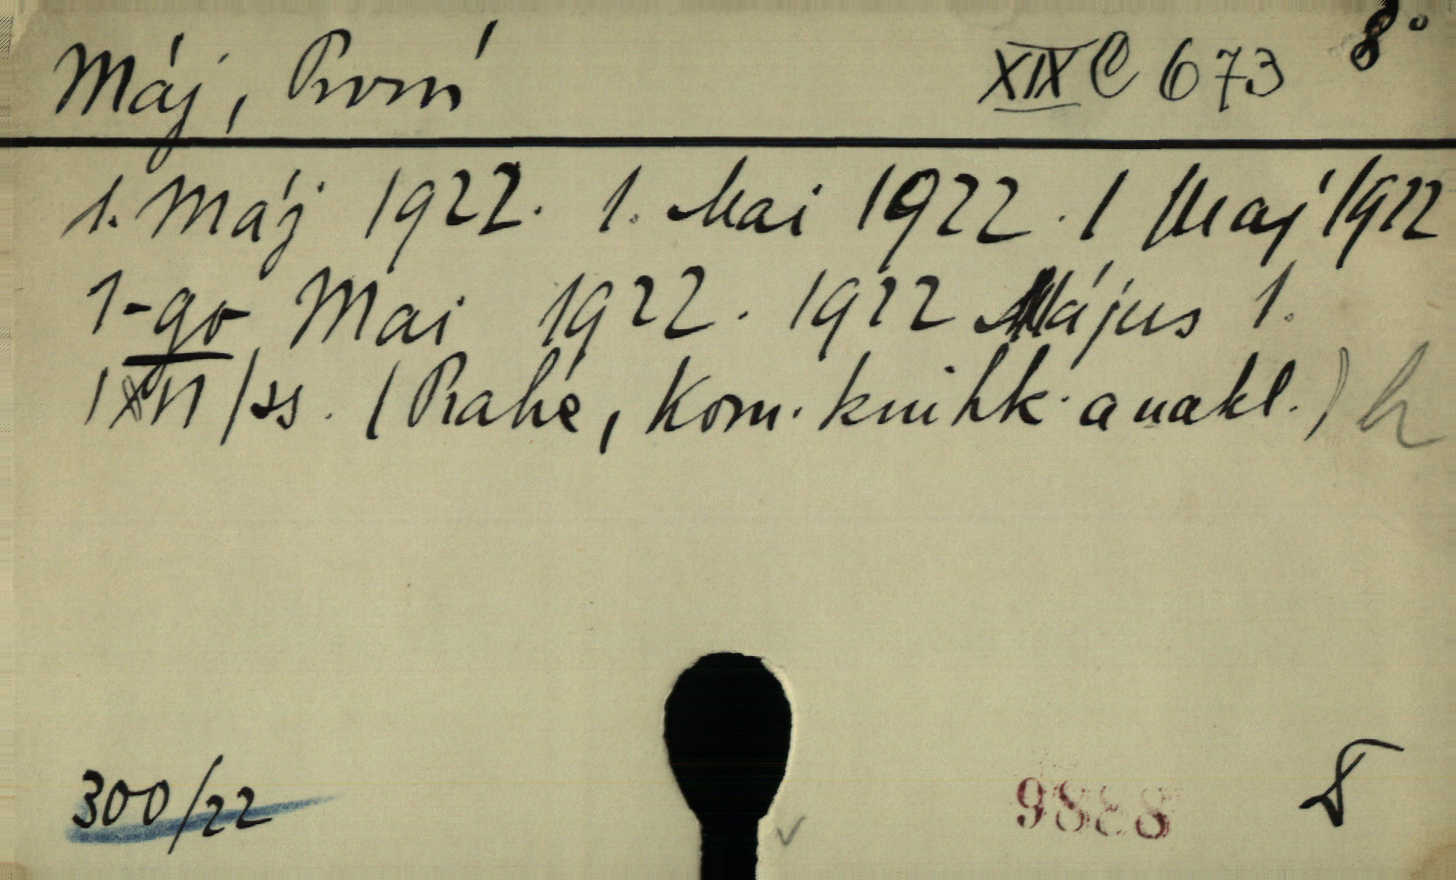 Máj, První XIX C 673 8°
1. Máj 1922. 1. Mai 1922. 1 Maj 1922
1-go Mai 1922. 1922 Május 1.
(Praha, Kom. knihk. a nakl.)
300/22 9888